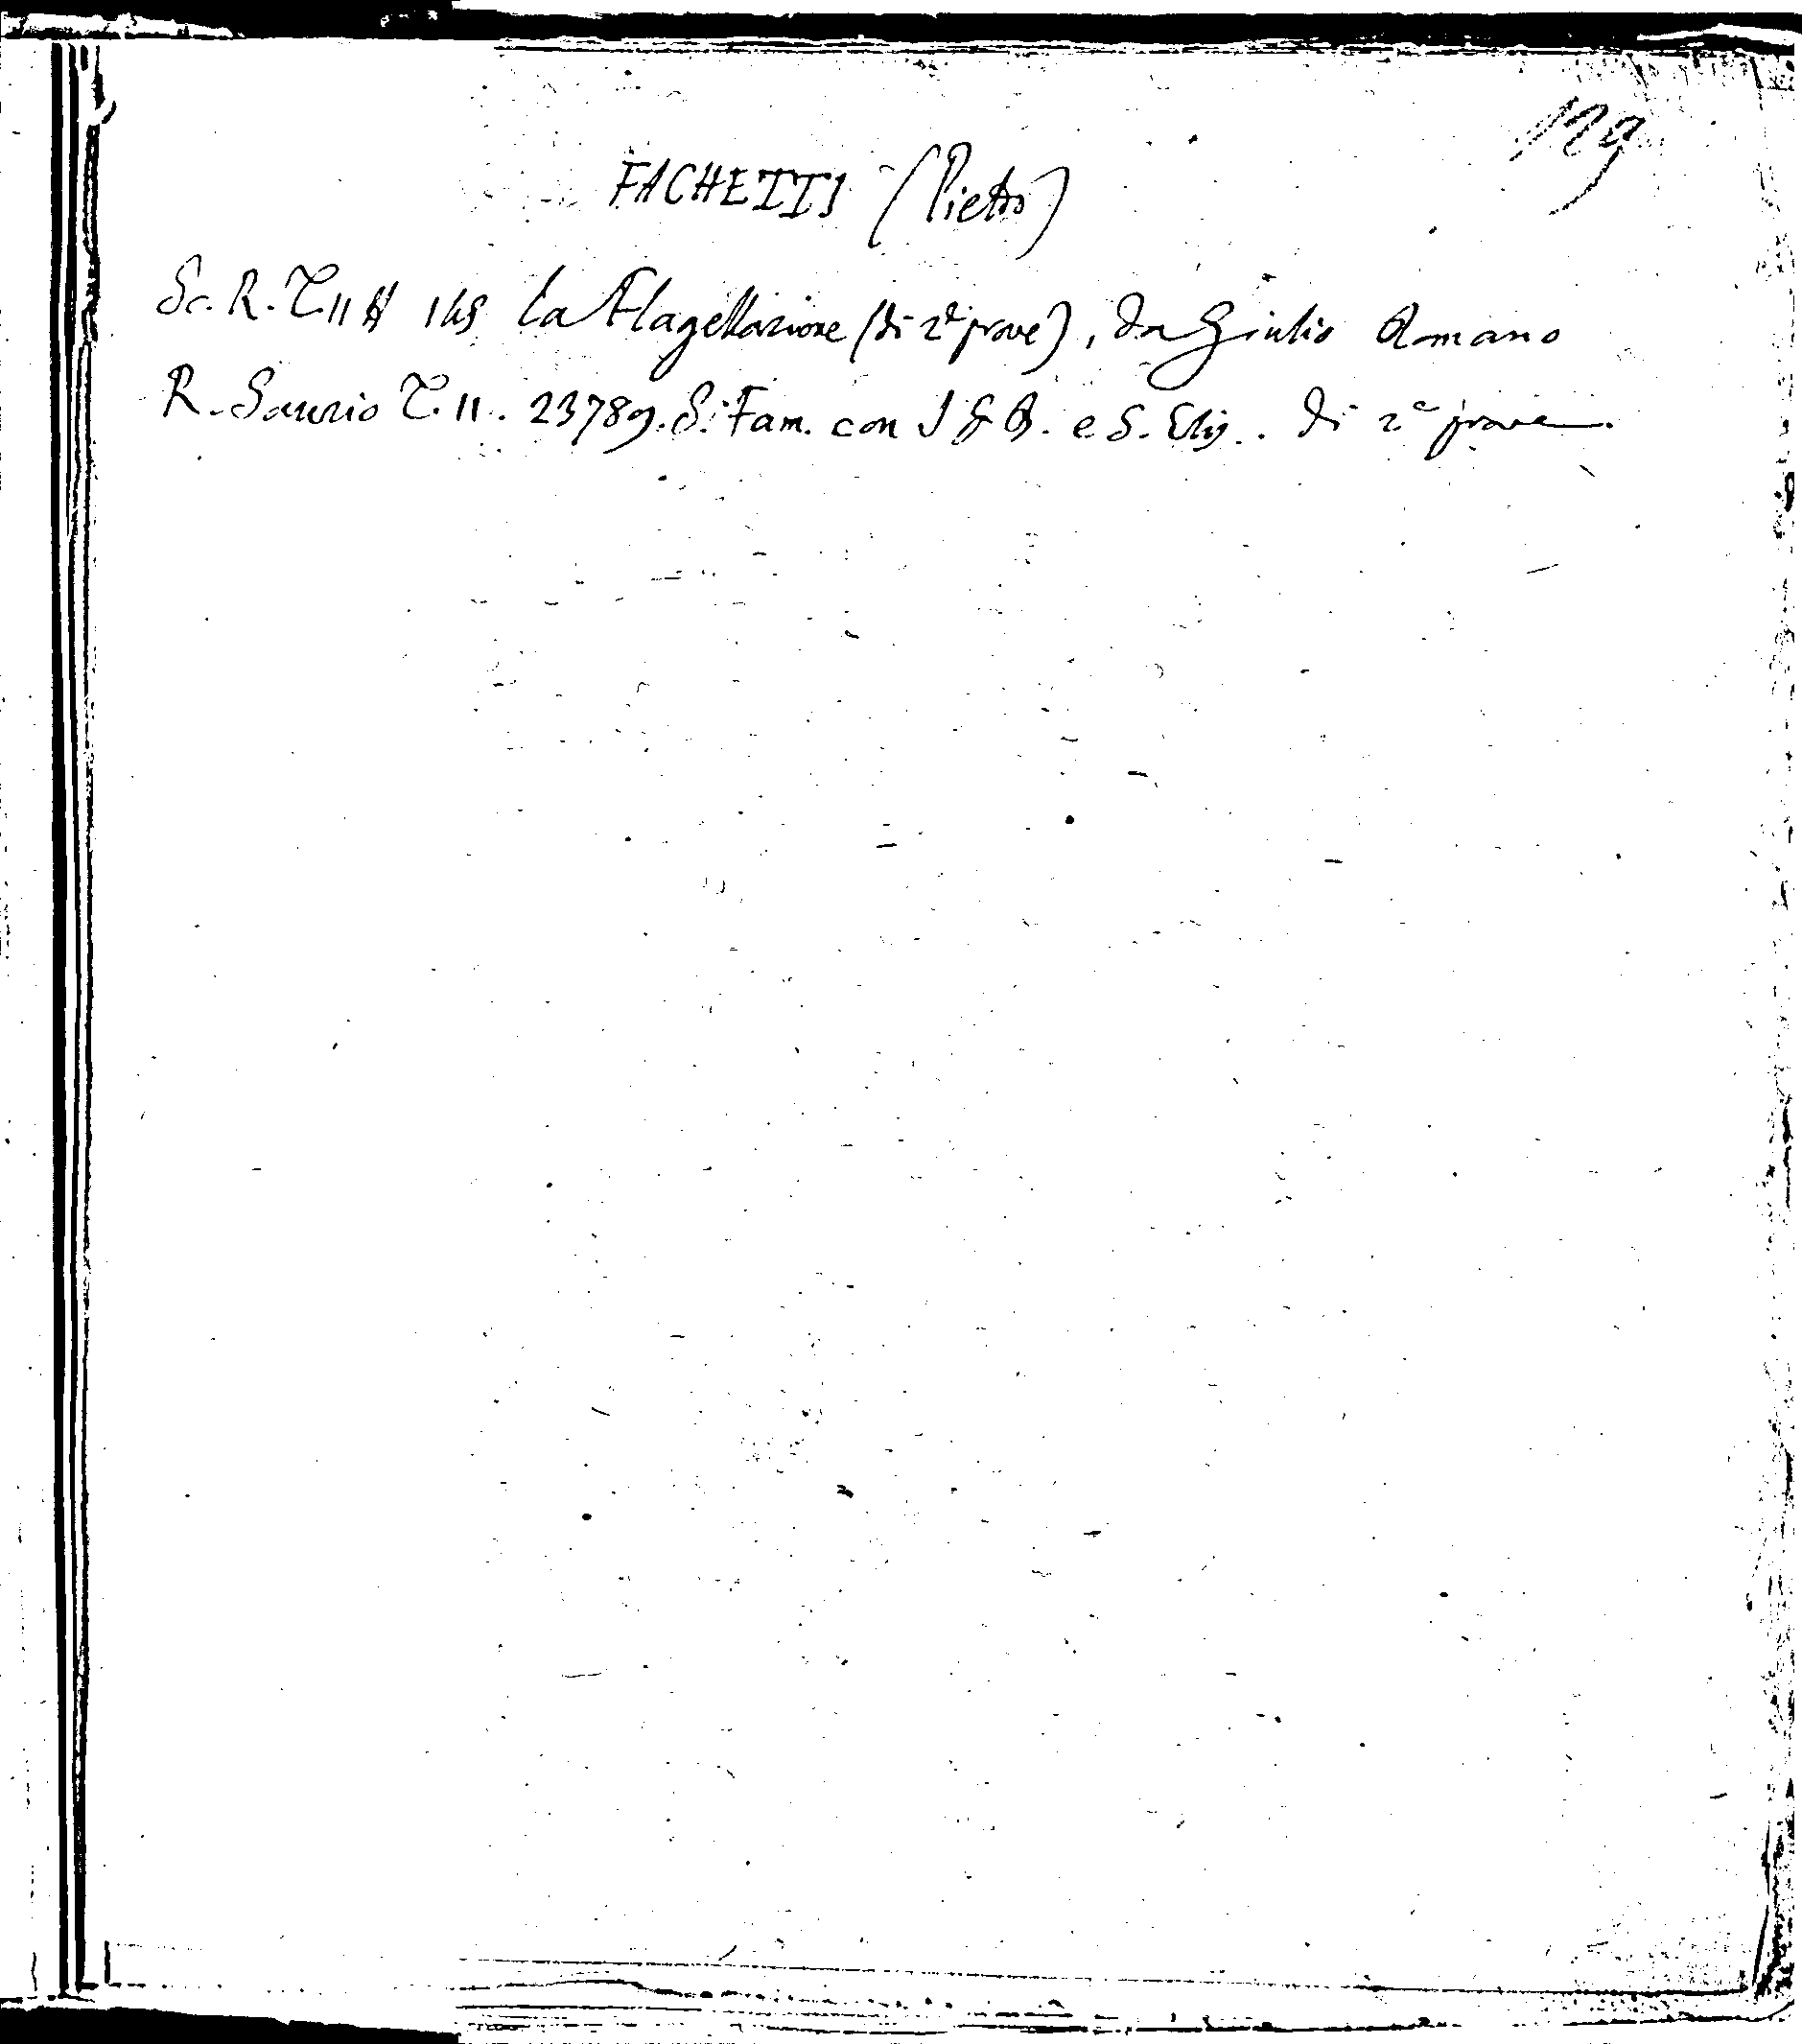 129
FACHETTI (Pietro)
Sc. R. T. 11 H 145 La Flagellazione (di 2e prove), da Giulio Romano
R. Saurio T. 11. 23789. S. Fam. con S G B. e S. Elis.. di 2e prove.